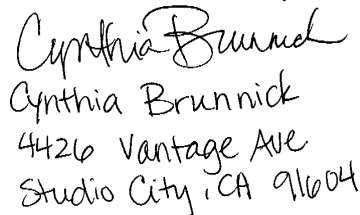 Cynthia Brunnick
Cynthia Brunnick
4426 Vantage Ave
Studio City, CA 91604